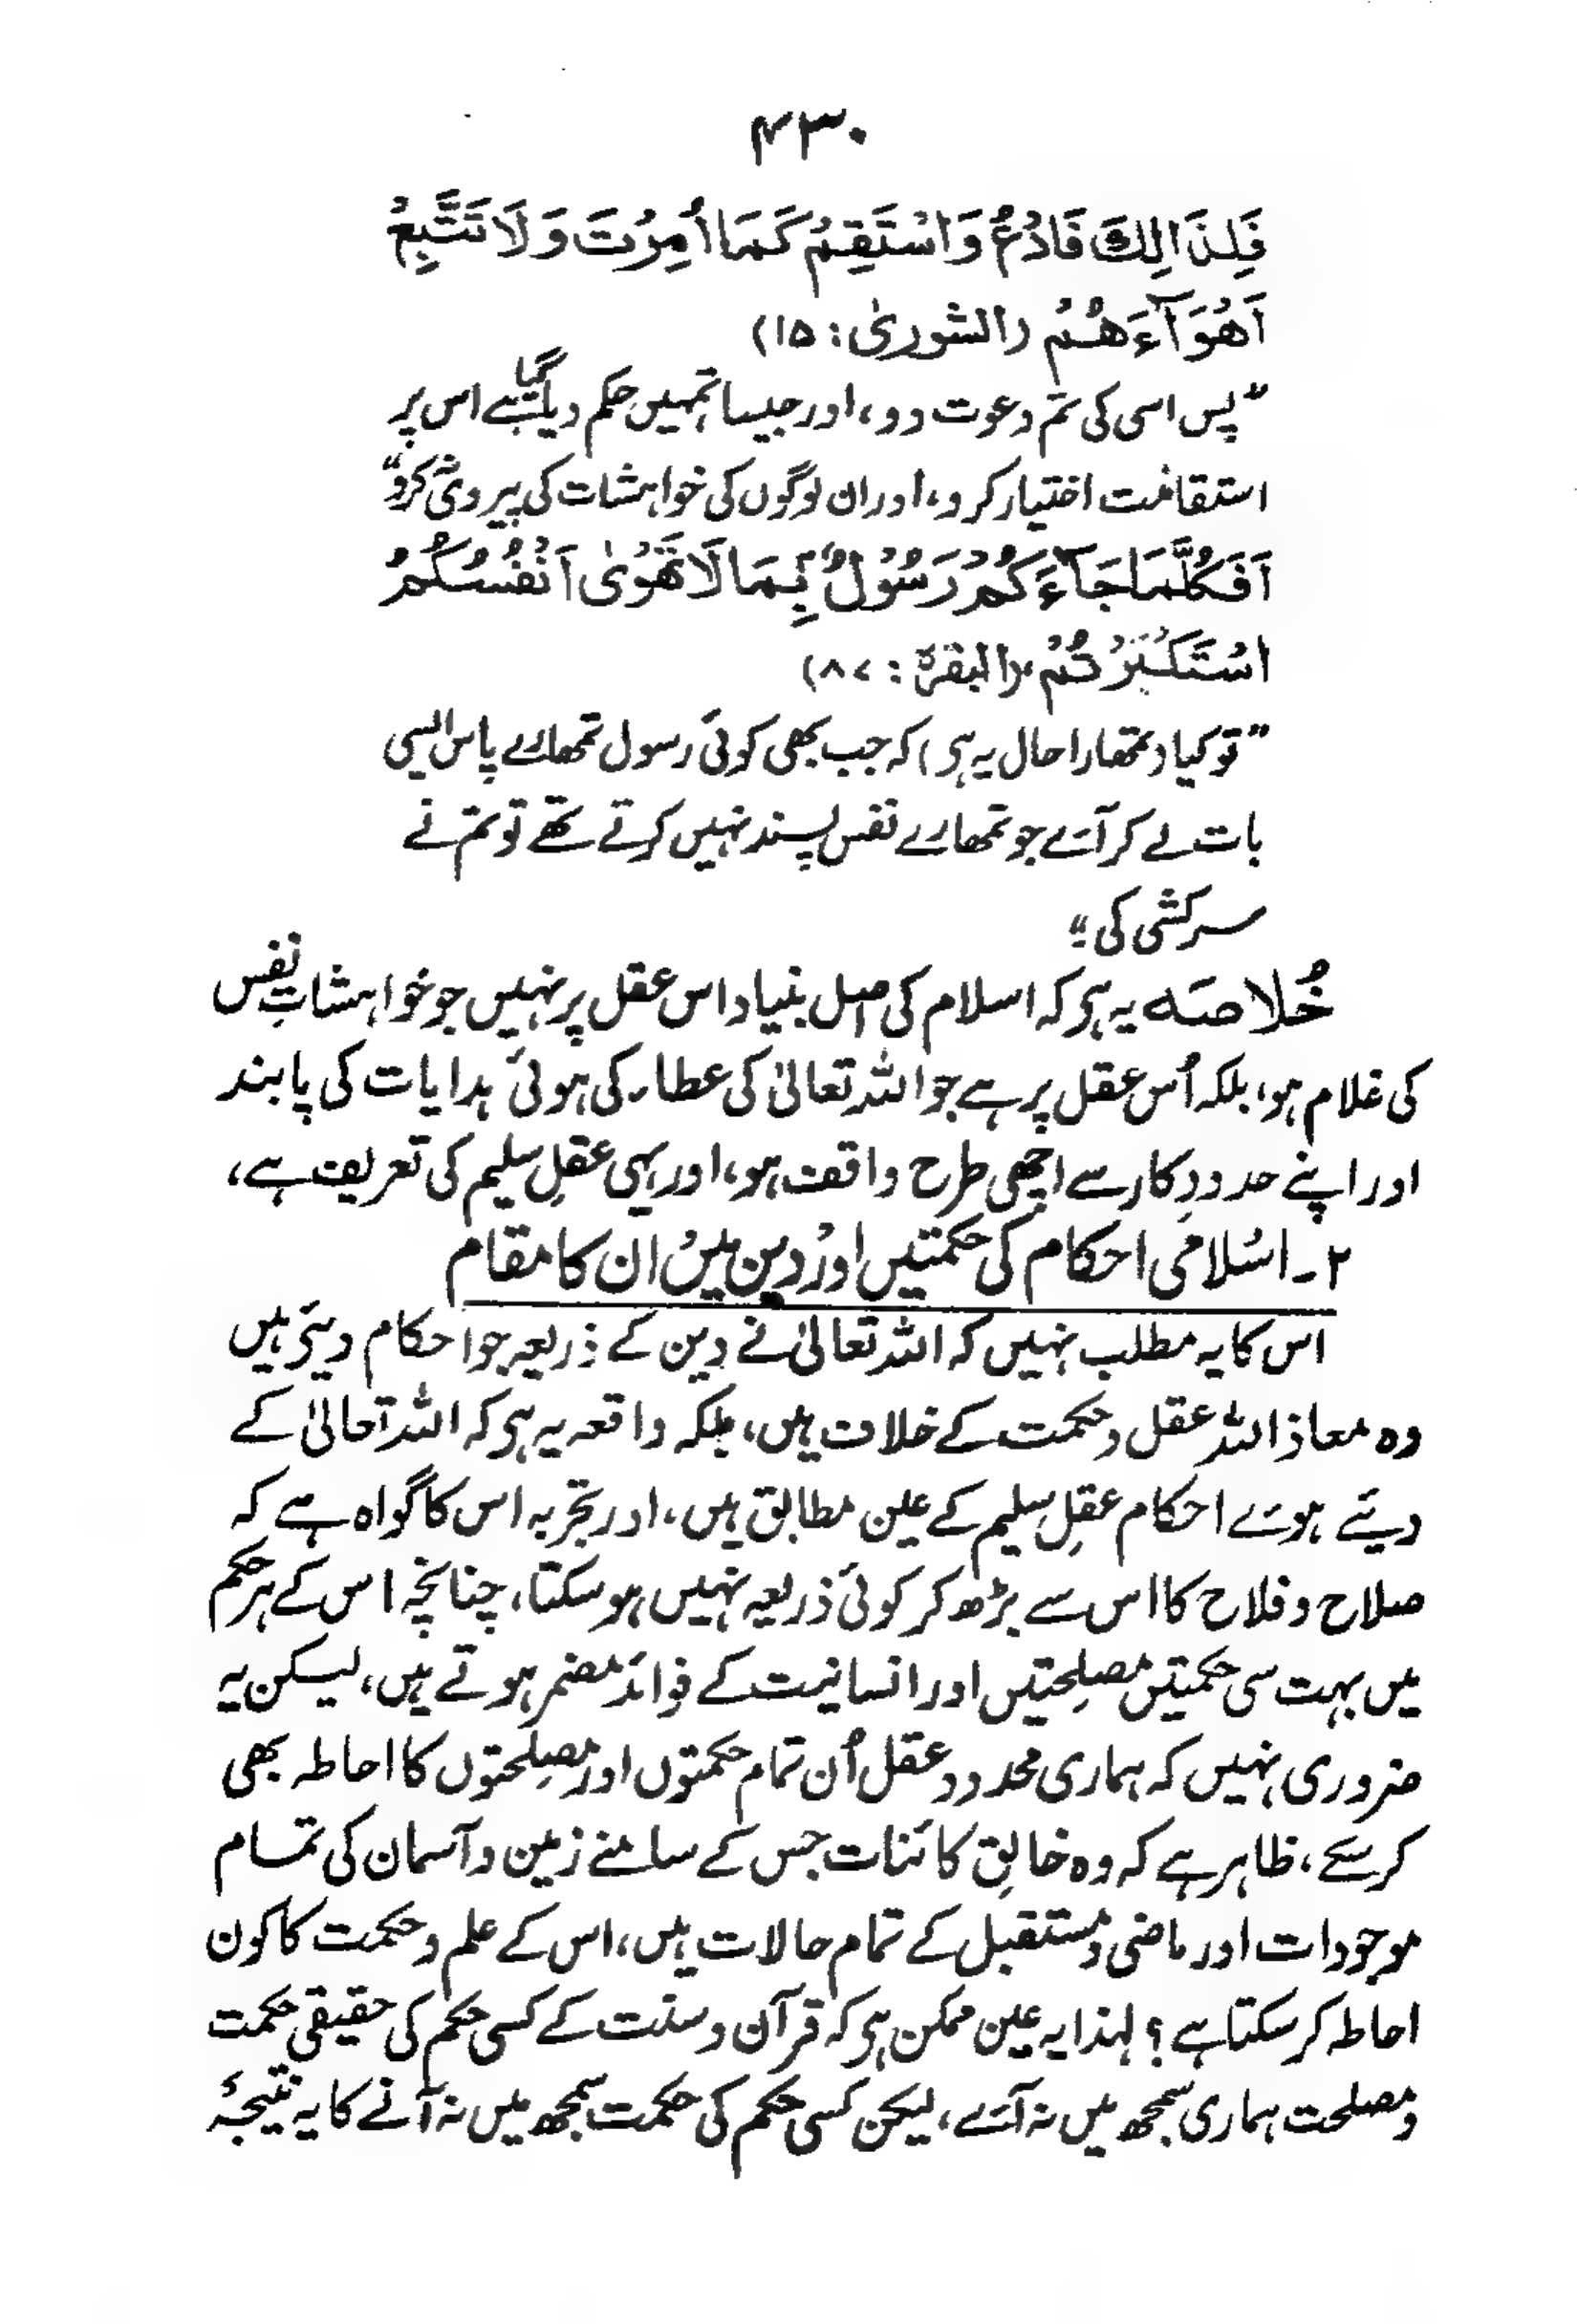 ۴۳۰
فَلِذَالِكَ فَادْعُ وَاسْتَقِمْ كَمَا اُمِرْتَ وَلَا تَتَّبِعْ
اَهْوَآءَهُمْ (الشوریٰ: ۱۵)
”پس اسی کی تم دعوت دو، اور جیسا تمہیں حکم دیا گیا ہے اس پر
استقامت اختیار کرو، اور ان لوگوں کی خواہشات کی پیروی نہ کرو“
اَفَكُلَّمَا جَآءَكُمْ رَسُوْلٌ بِمَا لَا تَهْوٰى اَنْفُسُكُمُ
اسْتَكْبَرْتُمْ (البقرۃ: ۸۷)
”تو کیا (تمھارا حال یہ ہی) کہ جب بھی کوئی رسول تمھارے پاس ایسی
بات لے کر آئے جو تمھارے نفس پسند نہیں کرتے تھے تو تم نے
سرکشی کی“
خُلاصَہ یہ ہی کہ اسلام کی اصل بنیاد اس عقل پر نہیں جو خواہشاتِ نفس
کی غلام ہو، بلکہ اُس عقل پر ہے جو اللہ تعالیٰ کی عطاء کی ہوئی ہدایات کی پابند
اور اپنے حدودِ کار سے اچھی طرح واقف ہو، اور یہی عقلِ سلیم کی تعریف ہے،
۲۔ اسْلامی احکام کی حکمتیں اورْ دین میں ان کا مقام
اس کا یہ مطلب نہیں کہ اللہ تعالیٰ نے دین کے ذریعہ جو احکام دیئے ہیں
وہ معاذ اللہ عقل و حکمت کے خلاف ہیں، بلکہ واقعہ یہ ہی کہ اللہ تعالیٰ کے
دیئے ہوئے احکام عقلِ سلیم کے عین مطابق ہیں، اور تجربہ اس کا گواہ ہے کہ
صلاح و فلاح کا اس سے بڑھ کر کوئی ذریعہ نہیں ہو سکتا، چنانچہ اس کے ہر حکم
میں بہت سی حکمتیں مصلحتیں اور انسانیت کے فوائد مضمر ہوتے ہیں، لیکن یہ
ضروری نہیں کہ ہماری محدود عقل اُن تمام حکمتوں اور مصلحتوں کا احاطہ بھی
کر سکے، ظاہر ہے کہ وہ خالقِ کائنات جس کے سامنے زمین و آسمان کی تمام
موجودات اور ماضی و مستقبل کے تمام حالات ہیں، اس کے علم و حکمت کا کون
احاطہ کر سکتا ہے؟ لہٰذا یہ عین ممکن ہی کہ قرآن و سنت کے کسی حکم کی حقیقی حکمت
و مصلحت ہماری سمجھ میں نہ آئے، لیکن کسی حکم کی حکمت سمجھ میں نہ آنے کا یہ نتیجہ